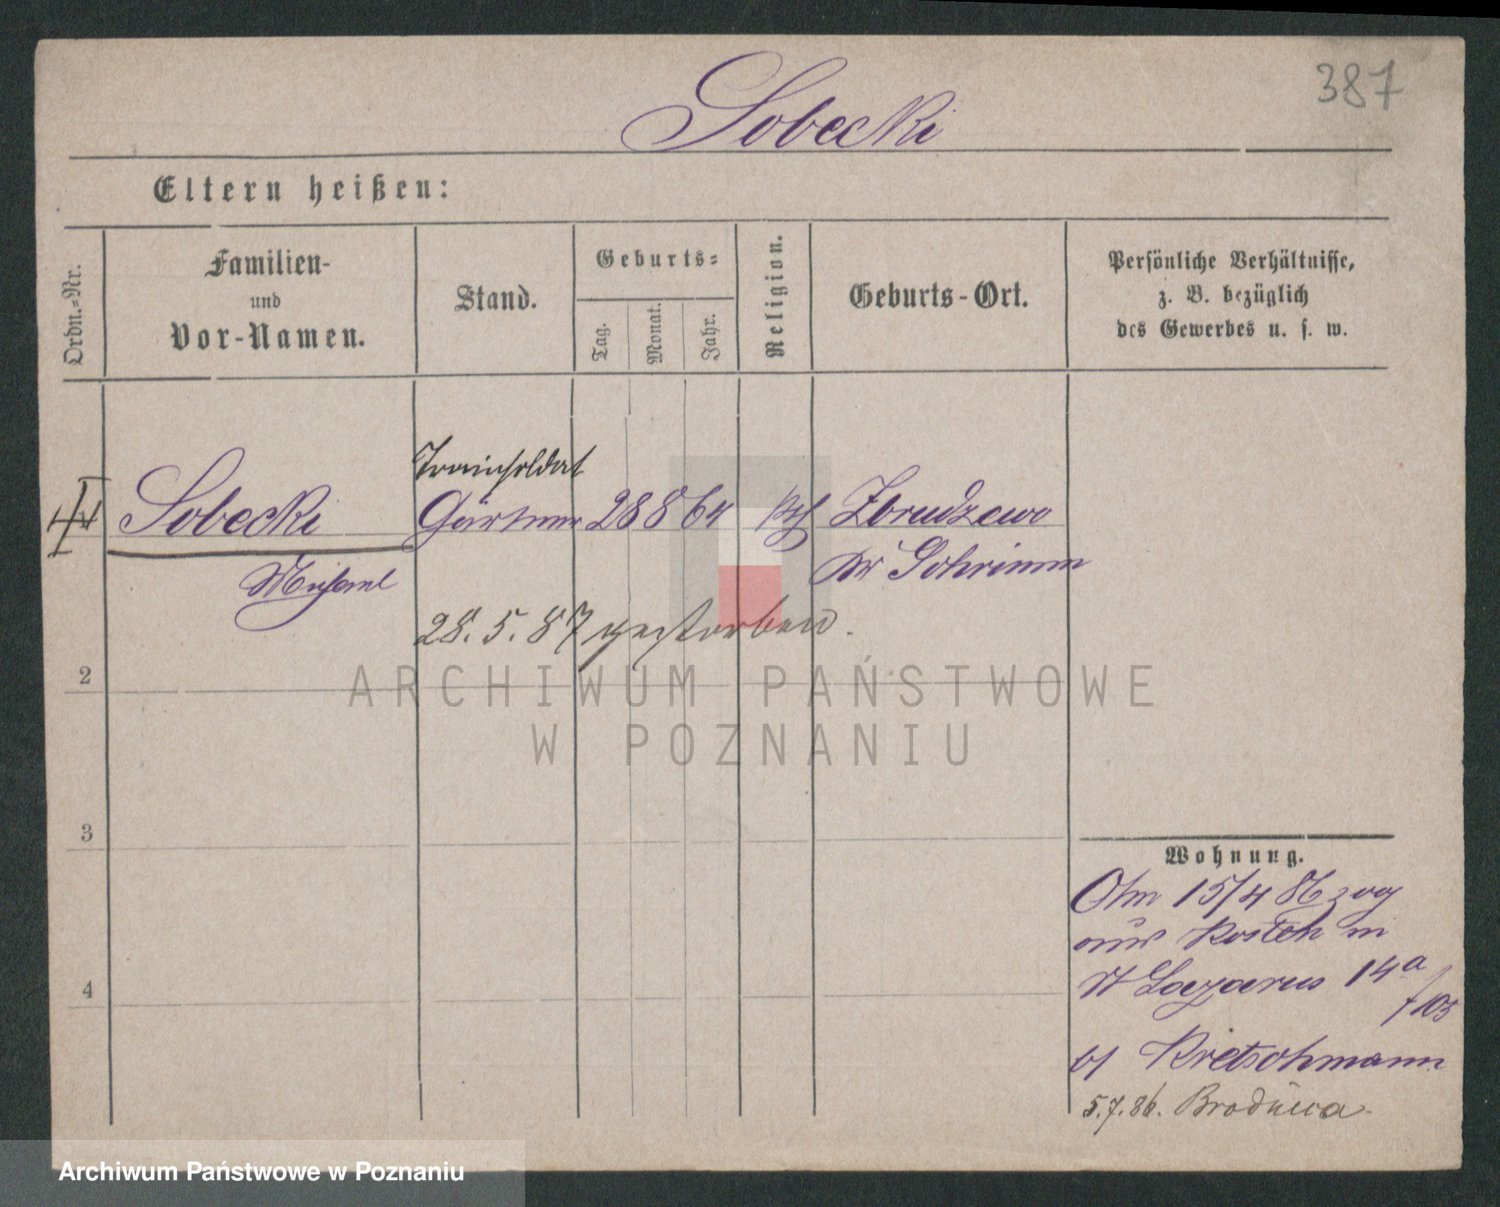 387
Sobecki
Eltern heißen:
Ordn.-Nr.
Familien-
und
Vor-Namen.
Stand.
Geburts-
Tag.
Monat.
Jahr.
Religion.
Geburts-Ort.
Persönliche Verhältnisse,
z. B. bezüglich
des Gewerbes u. s. w.
Trainsoldat
Sobecki Gärtner 28 8 64 kth Zbrudzewo
Michael Kr Schrimm
28. 5. 87 gestorben.
2
ARCHIWUM PAŃSTWOWE
W POZNANIU
3
Wohnung.
15/4 86 zog
aus Kosten in
St Lazarus 14a
/103
bj Kretschmann
4
5.7.86.
Archiwum Państwowe w Poznaniu